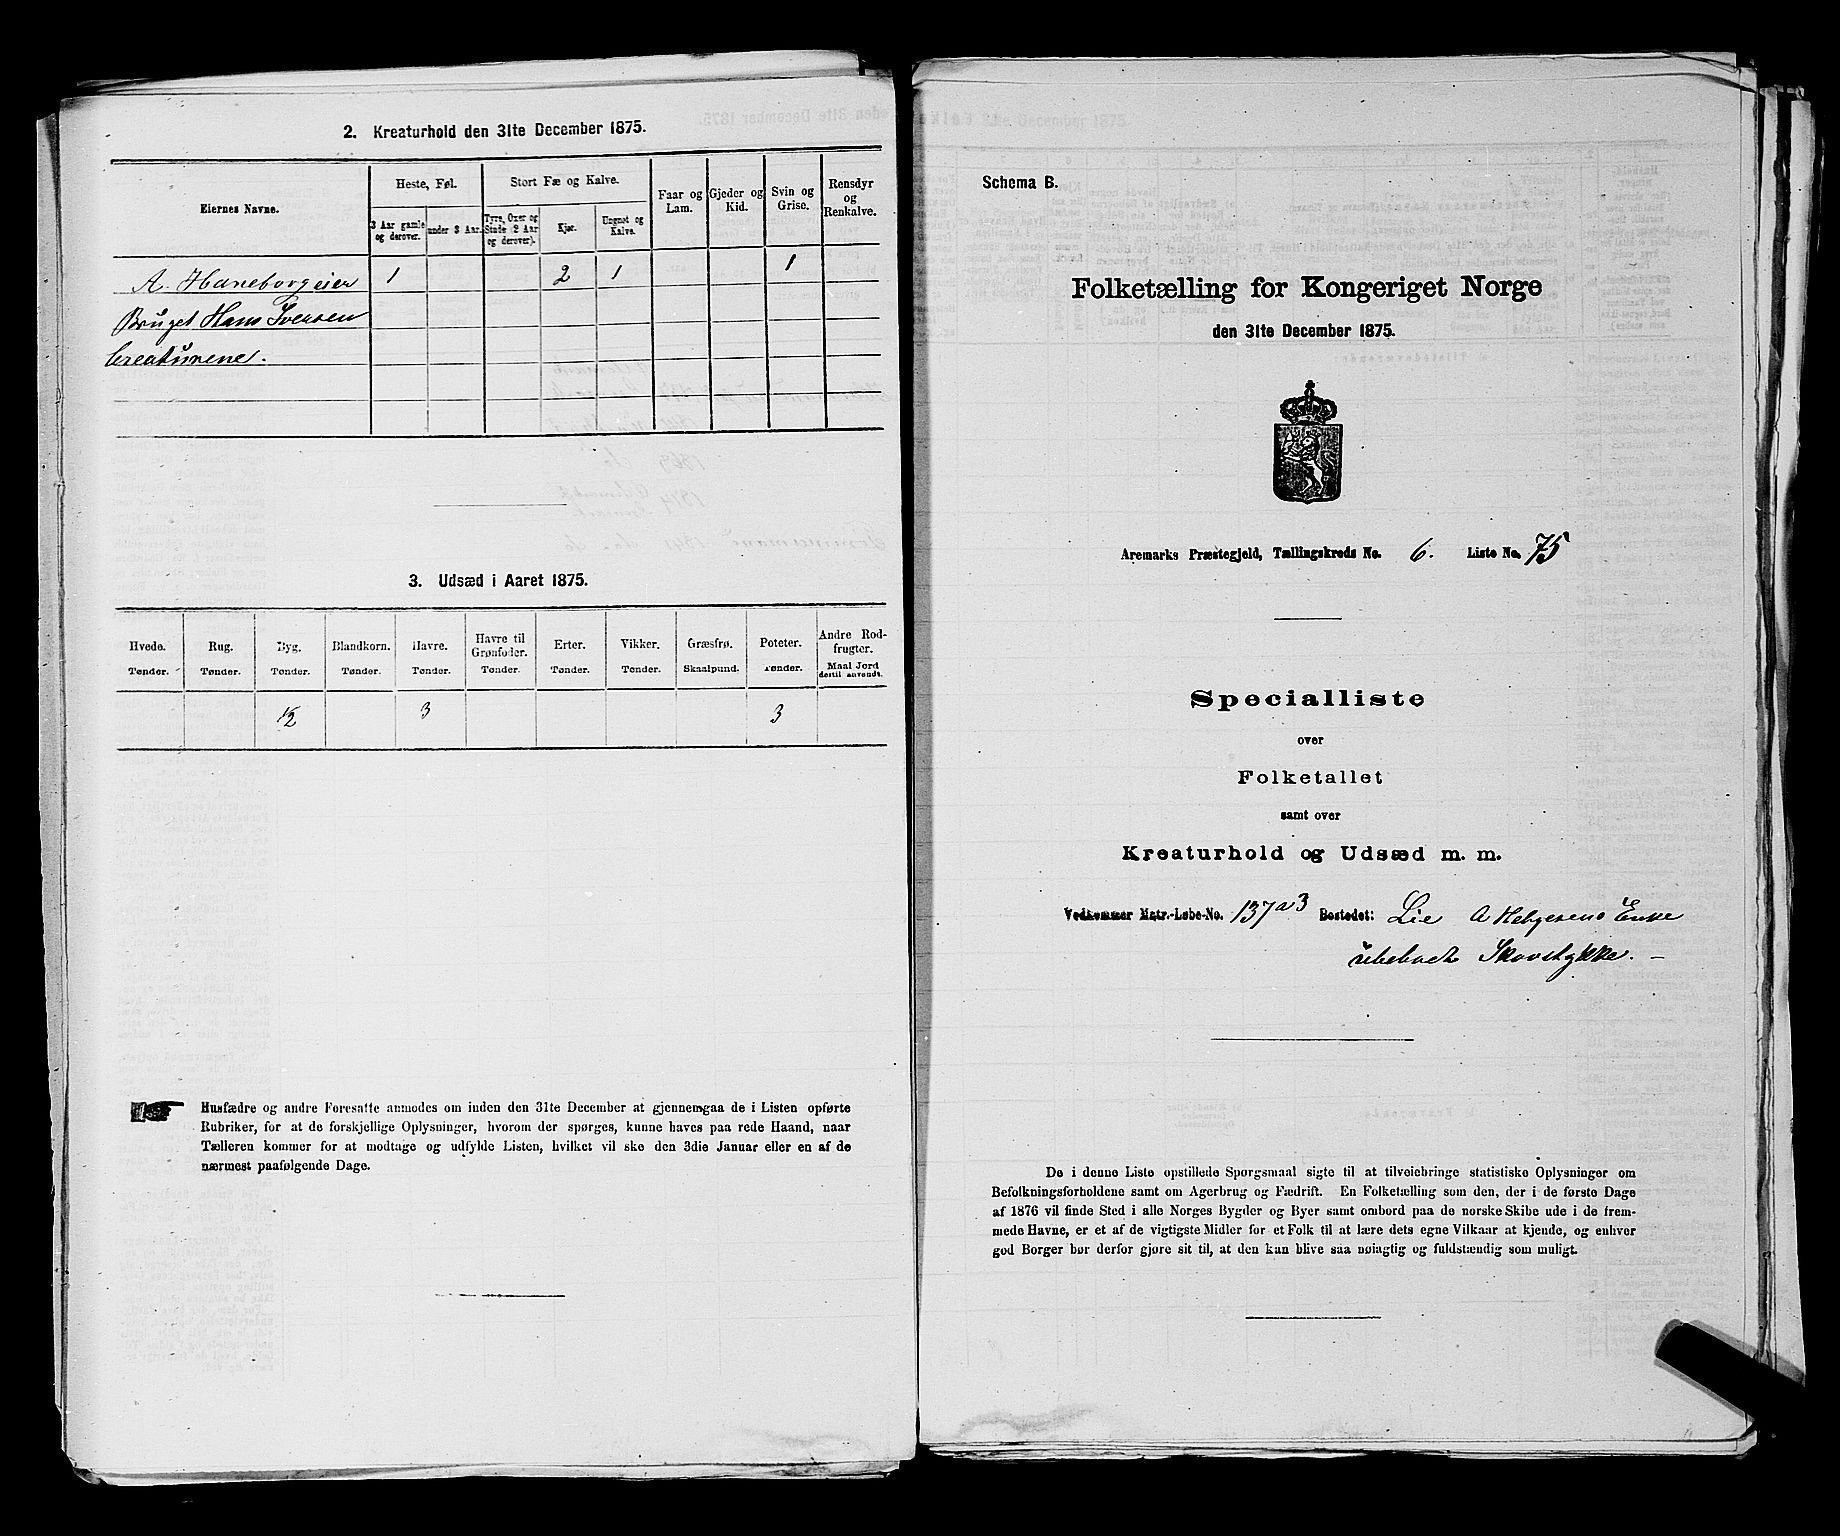 2. Kreaturhold den 31te December 1875.
Eiernes Navne.
Heste, Føl.
Stort Fæ og Kalve.
Faar og Lam.
Gjeder og Kid.
Svin og Grise.
Rensdyr og Renkalve.
3 Aar gamle og derover.
under 3 Aar.
Tyre, Oxer og Stude (2 Aar og derover).
Kjør.
Ungnøt og Kalve.
A. Haneborg eier 1 2 1 1
Bruget Hans Iversen
Creaturene.
3. Udsæd i Aaret 1875.
Hvede. Rug. Byg. Blandkorn. Havre. Havre til Grønfoder. Erter. Vikker. Græsfrø. Poteter. Andre Rodfrugter.
Tønder. Tønder. Tønder. Tønder. Tønder. Tønder. Tønder. Tønder. Skaalpund. Tønder. Maal Jord dertil anvendt.
1/2 3 3
Husfædre og andre Foresatte anmodes om inden den 31te December at gjennemgaa de i Listen opførte
Rubriker, for at de forskjellige Oplysninger, hvorom der spørges, kunne haves paa rede Haand, naar
Tælleren kommer for at modtage og udfylde Listen, hvilket vil ske den 3die Januar eller en af de
nærmest paafølgende Dage.
Schema B.
Folketælling for Kongeriget Norge
den 31te December 1875.
Aremarks Præstegjeld, Tællingskreds No. 6. Liste No. 75
Specialliste
over
Folketallet
samt over
Kreaturhold og Udsæd m. m.
Vedkommer Matr.-Løbe-No. 137a3 Bostedet: Lie A Helgesens Enke
ubeboet Skovstykke. —
De i denne Liste opstillede Spørgsmaal sigte til at tilveiebringe statistiske Oplysninger om
Befolkningsforholdene samt om Agerbrug og Fædrift. En Folketælling som den, der i de første Dage
af 1876 vil finde Sted i alle Norges Bygder og Byer samt ombord paa de norske Skibe ude i de frem-
mede Havne, er et af de vigtigste Midler for et Folk til at lære dets egne Vilkaar at kjende, og enhver
god Borger bør derfor gjøre sit til, at den kan blive saa nøiagtig og fuldstændig som muligt.